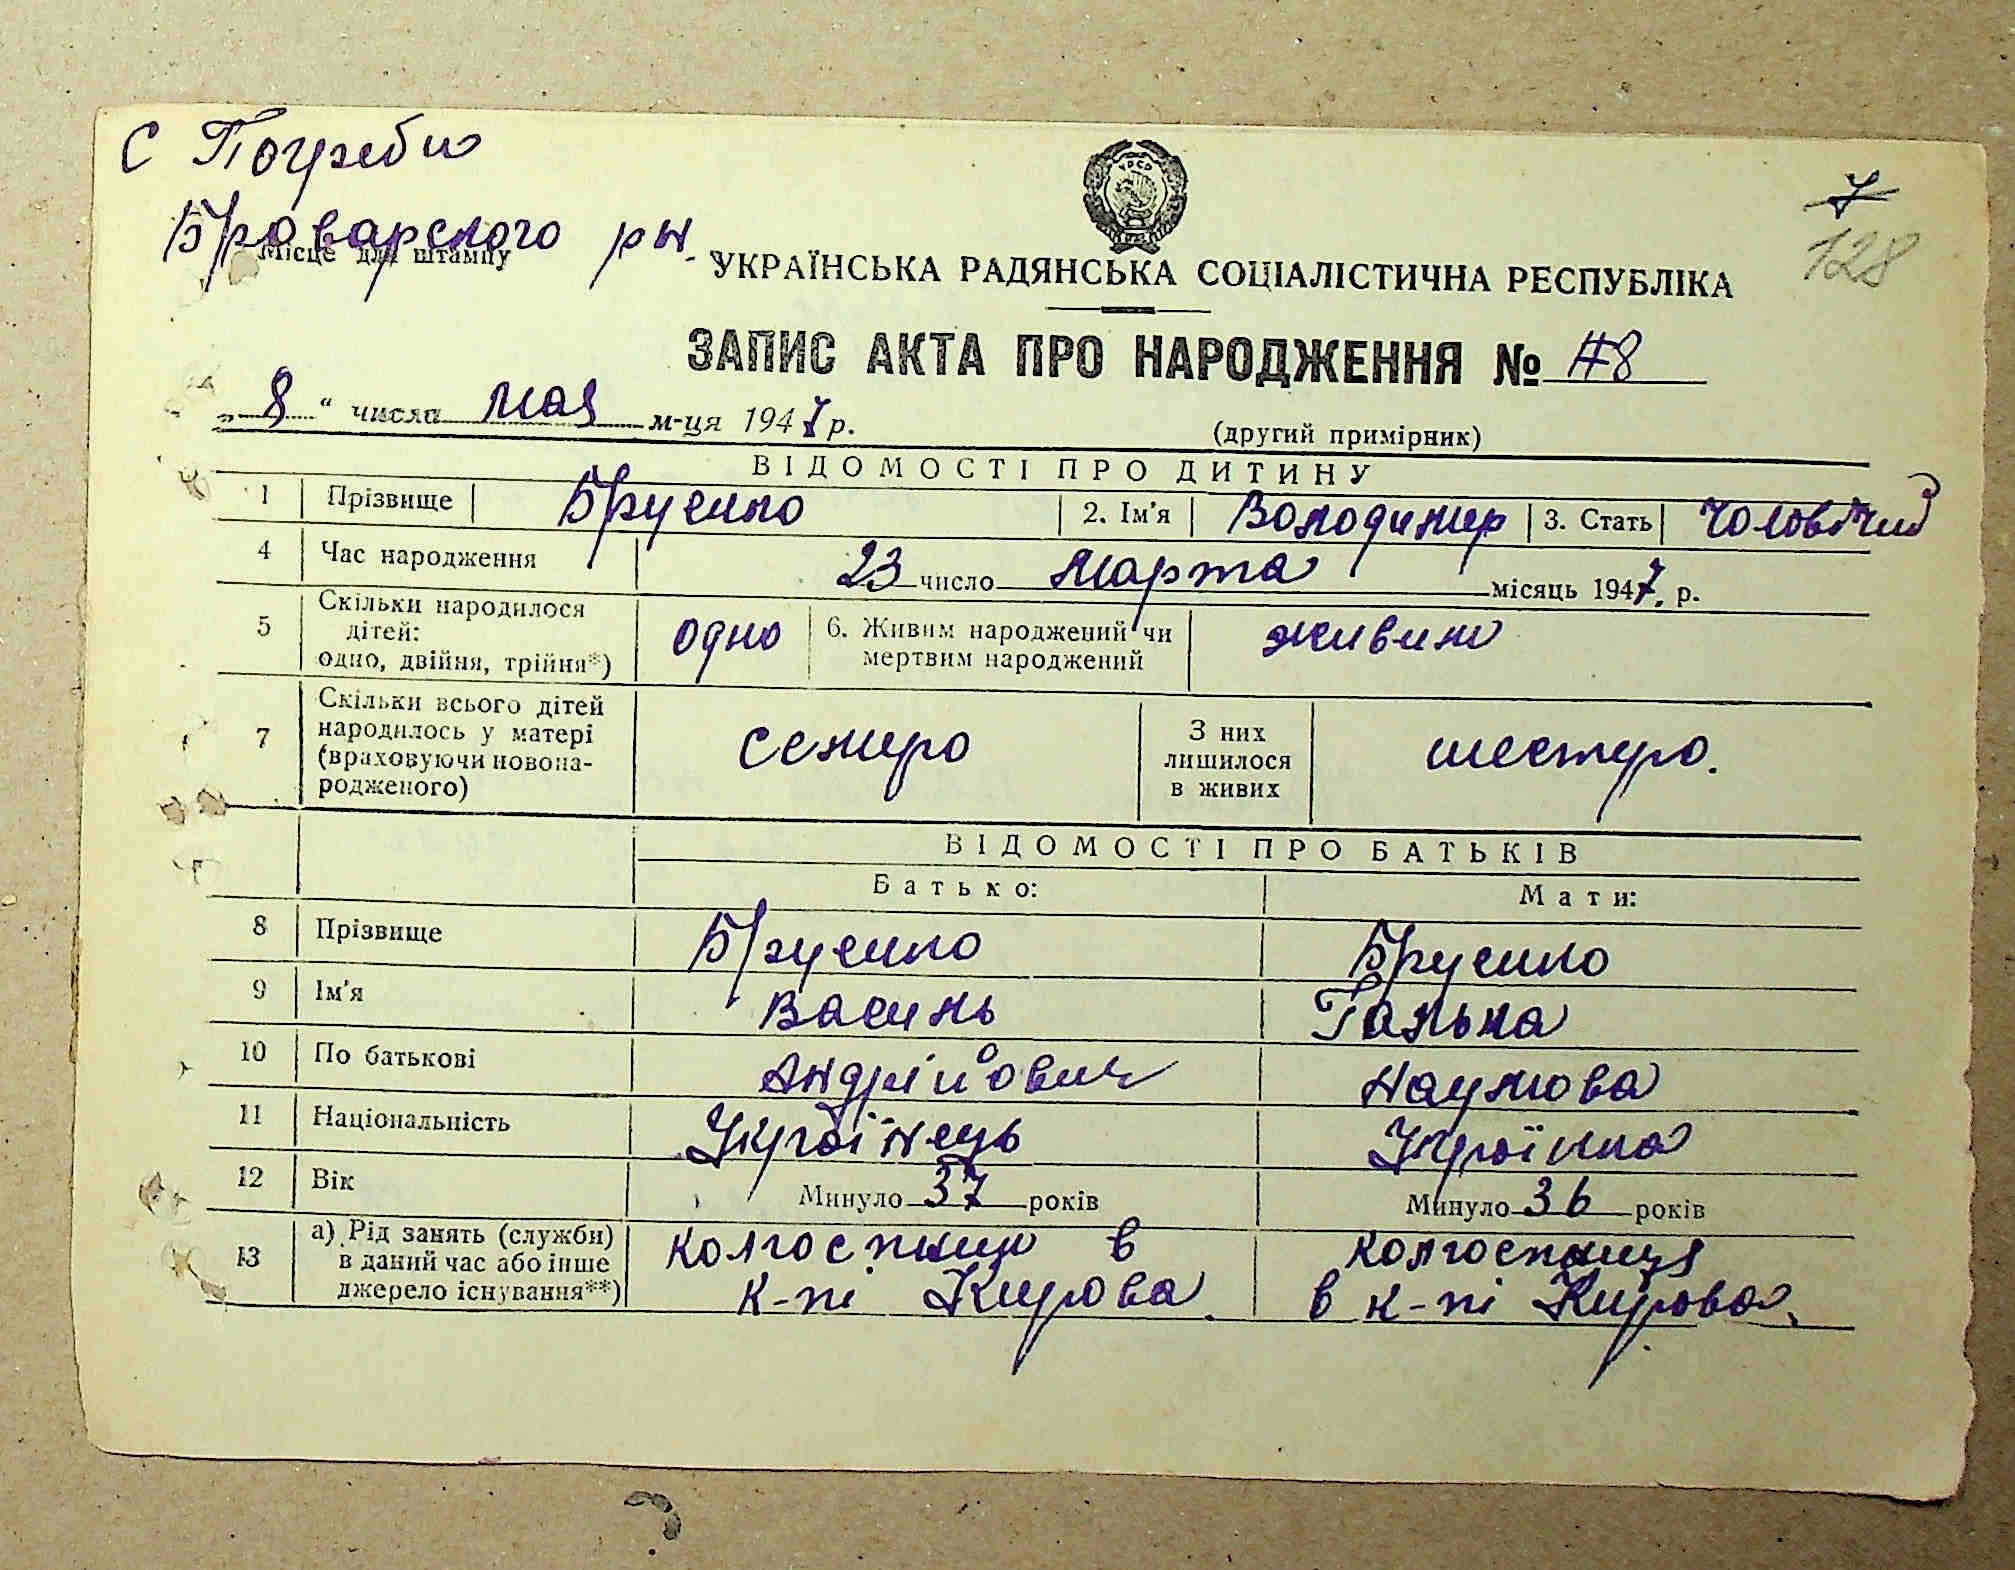 С Погреби
Броварского рн.
Місце для штампу
7
128
УКРАЇНСЬКА РАДЯНСЬКА СОЦІАЛІСТИЧНА РЕСПУБЛІКА
ЗАПИС АКТА ПРО НАРОДЖЕННЯ № #8
„8“ числа мая м-ця 1947 р.
(другий примірник)
ВІДОМОСТІ ПРО ДИТИНУ
1 Прізвище Брусико 2. Ім'я Володимир 3. Стать чоловічий
4 Час народження 23 число Марта місяць 1947. р.
5 Скільки народилося дітей: одно, двійня, трійня*) одно 6. Живим народжений чи мертвим народжений живим
7 Скільки всього дітей народилось у матері (враховуючи новонародженого) семиро З них лишилося в живих шестиро.
ВІДОМОСТІ ПРО БАТЬКІВ
Батько: Мати:
8 Прізвище Брусико Брусико
9 Ім'я Василь Галька
10 По батькові Андрійович Наумова
11 Національність Українець Українка
12 Вік Минуло 37 років Минуло 36 років
13 а) Рід занять (служби) в даний час або інше джерело існування**) колгоспник в к-пі Кирова. колгоспниця в к-пі Кирова.